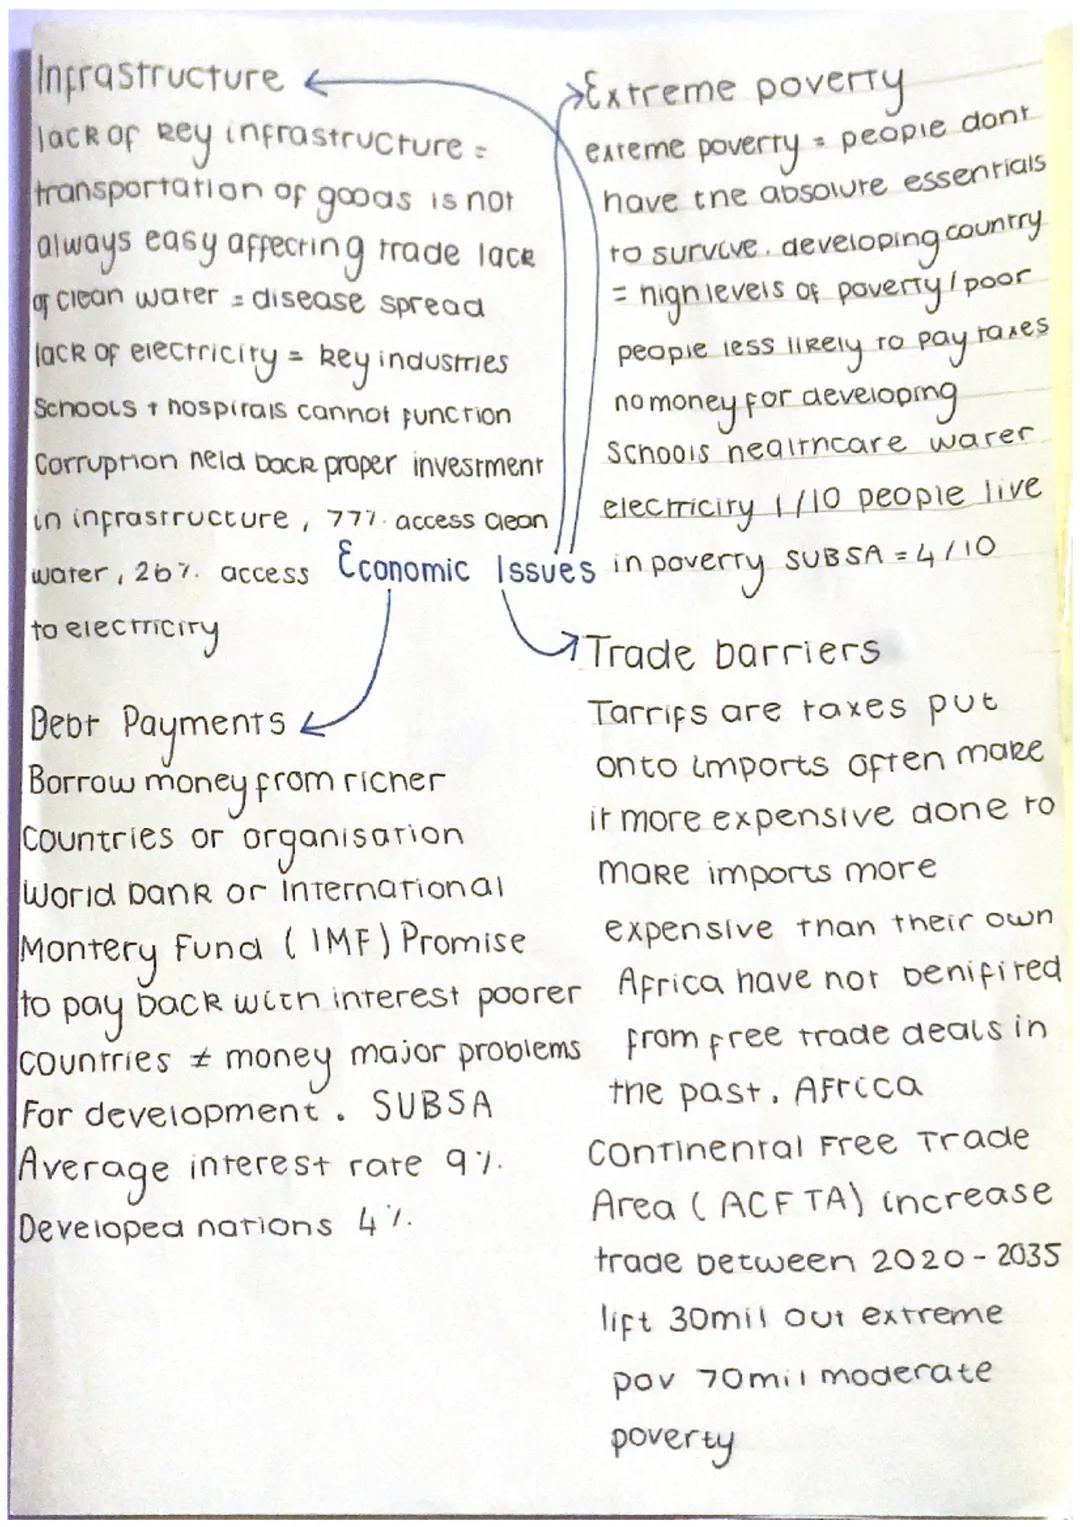 Infrastructure
lack of key infrastructure =
transportation of goods is not
always easy affecting trade lack
of clean water = disease spread
lack of electricity = key industries
Schools + hospitals cannot function
Corruption held back proper investment
in infrastructure, 77% access clean
water, 26% access
to electricity
Extreme poverty
exteme poverty = people dont
have the absolute essentials
to survive. developing country
= high levels of poverty / poor
people less likely to pay taxes
no money for developing
Schools healthcare water
electricity 1/10 people live
in poverty SUBSA = 4/10
Economic Issues
Debt Payments
Borrow money from richer
countries or organisation
World bank or International
Montery Fund (IMF) Promise
to pay back with interest poorer
countries ≠ money major problems
For development. SUBSA
Average interest rate 9%.
Developed nations 4%.
Trade barriers
Tarrifs are taxes put
onto imports often make
it more expensive done to
make imports more
expensive than their own
Africa have not benifited
from free trade deals in
the past. Africa
Continental Free Trade
Area (ACFTA) increase
trade between 2020-2035
lift 30mil out extreme
pov 70mil moderate
poverty